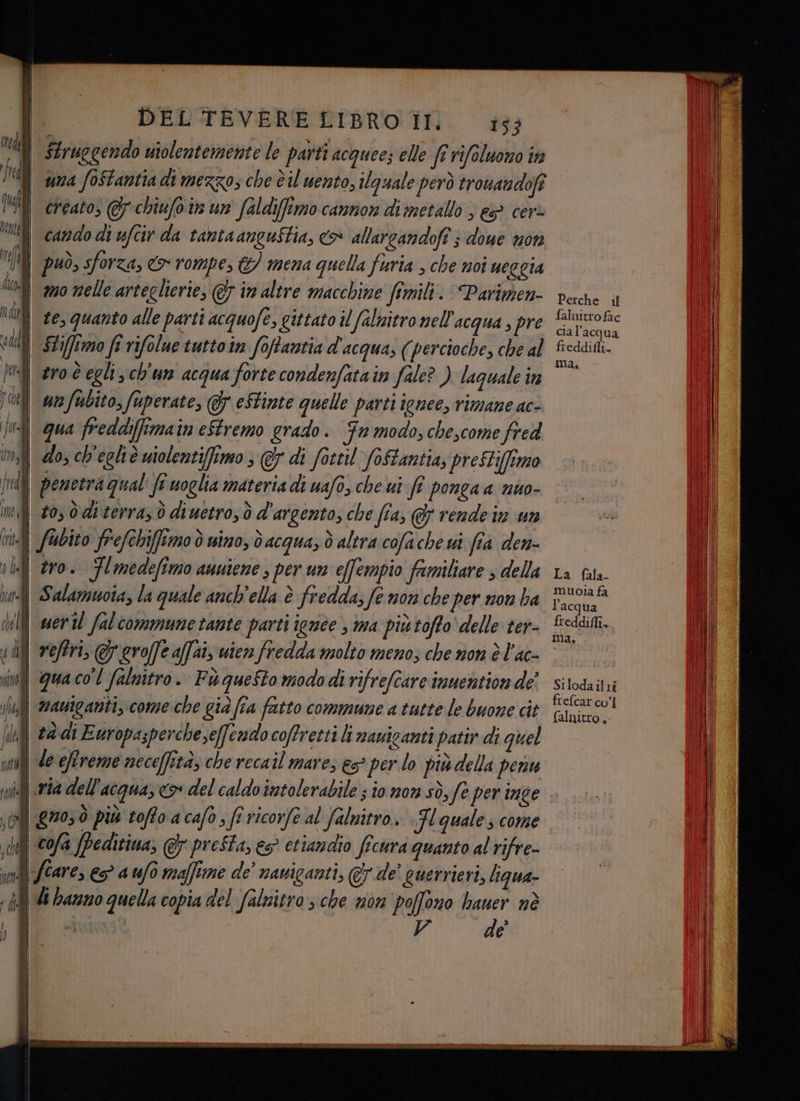 DEL TEVERE LIBRO II. 153
Struggendo uiolentemente le parti acquee; elle si risoluono in
una sostantia di mezzo, che è il uento, ilquale però trouandosi
creato, & chiuso in un saldissimo cannon di metallo, & cer-
cando di uscir da tanta angustia, & allargandosi; doue non
può, sforza, & rompe, & mena quella furia, che noi ueggia
mo nelle arteglierie, & in altre macchine simili. Parimen-
te, quanto alle parti acquose, gittato il salnitro nell'acqua, pre
stissimo si risolue tutto in sostantia d'acqua, (percioche, che al
tro è egli, ch'un acqua forte condensata in sale? ) laquale in
un subito, superate, & estinte quelle parti ignee, rimane ac-
qua freddissima in estremo grado. In modo, che, come fred
do, ch'egli è uiolentissimo, & di sottil sostantia, prestissimo
penetra qual si uoglia materia di uaso, che ui si ponga a nuo-
to, ò di terra, ò di uetro, ò d'argento, che sia, & rende in un
subito freschissimo ò uino, ò acqua, ò altra cosa che ui sia den-
tro. Il medesimo auuiene, per un essempio familiare, della
Salamuoia, la quale anch'ella è fredda, se non che per non ha
uer il sal commune tante parti ignee, ma più tosto delle ter-
restri, & grosse assai, uien fredda molto meno, che non è l'ac-
qua co'l salnitro. Fù questo modo di rifrescare inuention de'
nauiganti, come che già sia fatto commune a tutte le buone cit
tà di Europa; perche, essendo costretti li nauiganti patir di quel
le estreme necessità, che reca il mare, & per lo più della penu
ria dell'acqua, & del caldo intolerabile; io non sò, se per inge
gno, ò più tosto a caso, si ricorse al salnitro. Il quale, come
cosa speditiua, & presta, & etiandio sicura quanto al rifre-
scare, & a uso massime de' nauiganti, & de' guerrieri, liqua-
li hanno quella copia del salnitro, che non possono hauer nè
V de'
Perche il
salnitro fac
cia l'acqua
freddissi-
ma.
La sala-
muoia fa
l'acqua
freddissi-
ma.
Si loda il rī
frescar co'l
salnitro.